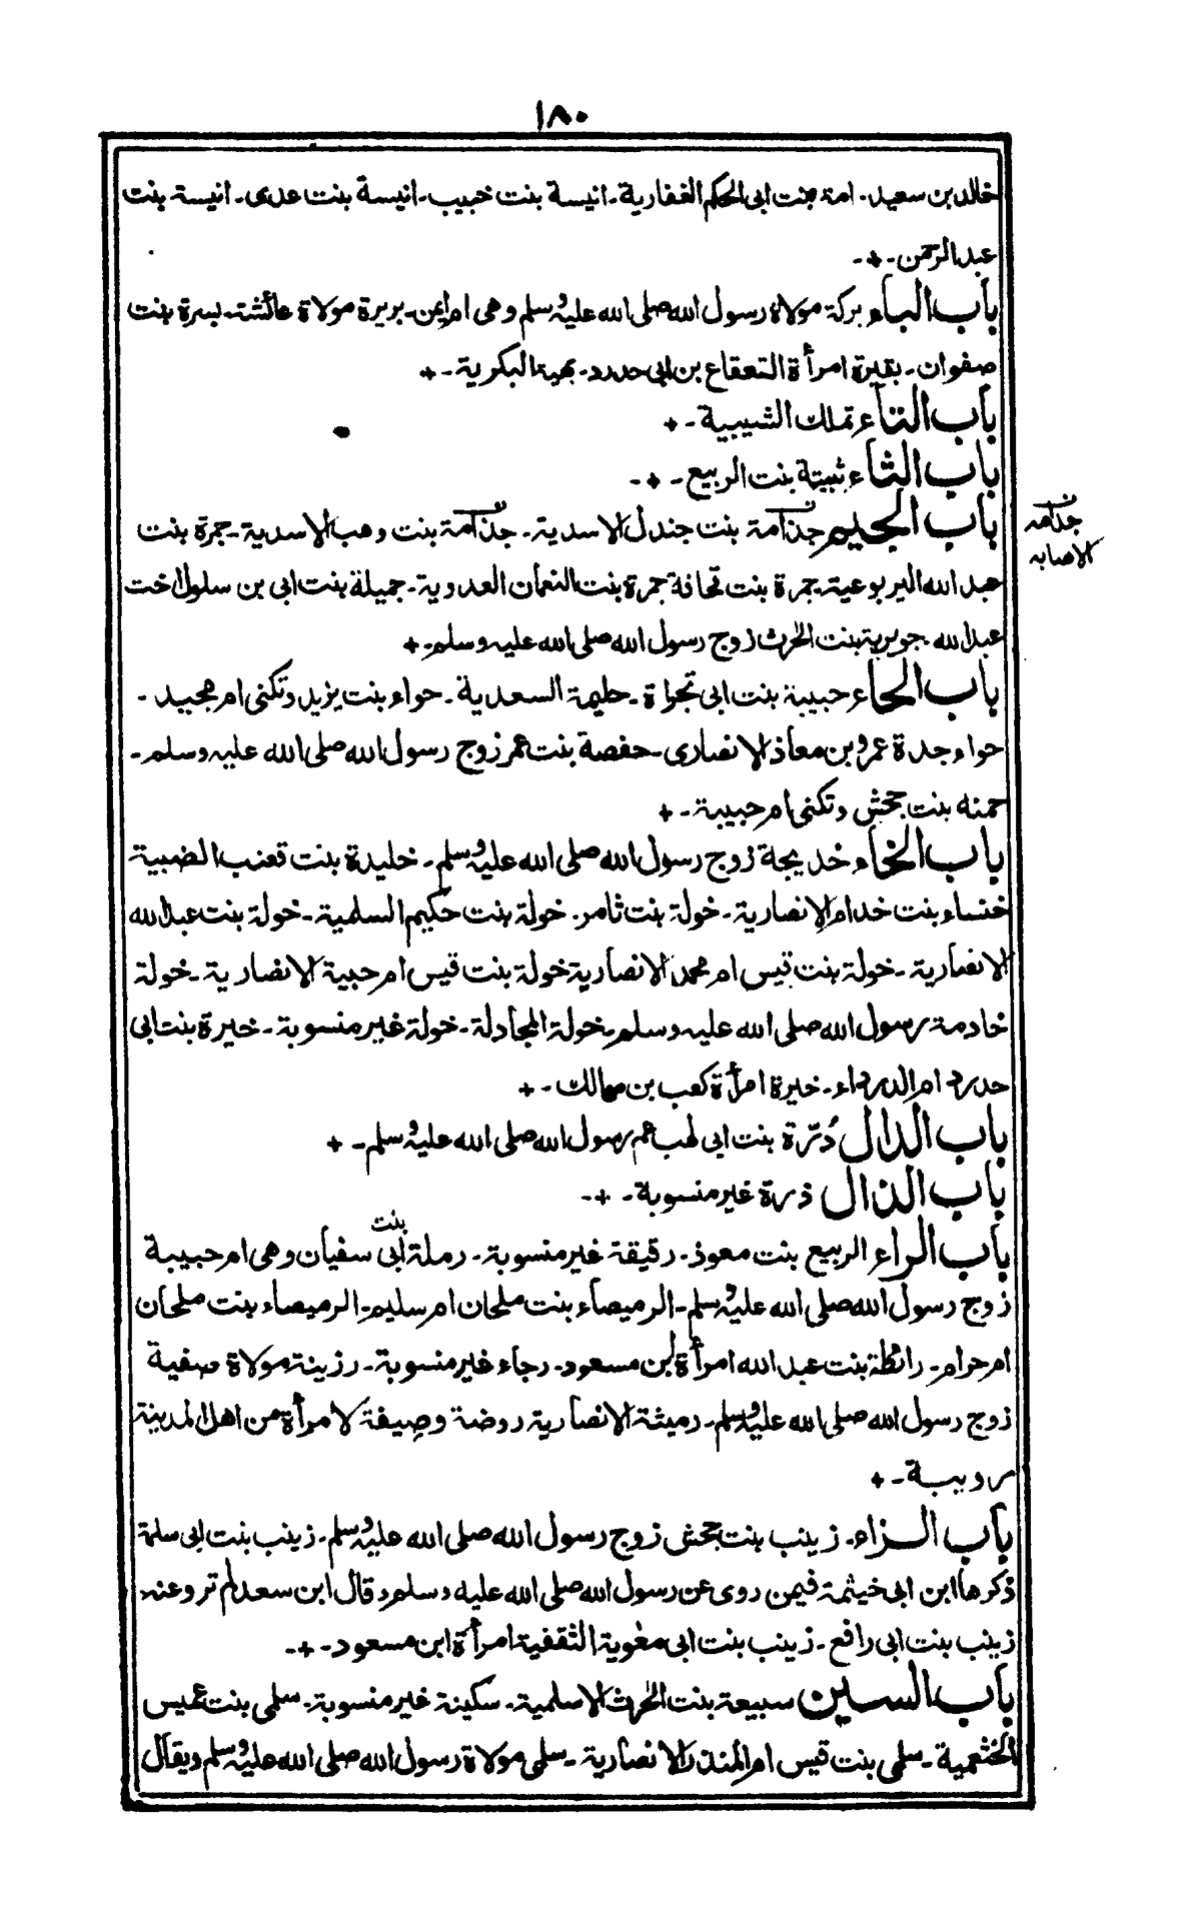 ١٨٠
خالد بن سعيد - امة بنت ابى الحكم الغفارية - انيسة بنت خبيب - انيسة بنت عدى - انيسة بنت
عبد الرحمن - + -
باب الباء بركة مولاة رسول الله صلى الله عليه وسلم وهى ام ايمن - بريرة مولاة عائشة - بسرة بنت
صفوان - بقيرة امرأة القعقاع بن ابى حدرد - بهية البكرية - +
باب التاء تملك الشيبية - +
باب الثاء ثبيتة بنت الربيع - + -
باب الجيم جذامة بنت جندل الاسدية - جذامة بنت وهب الاسدية - جمرة بنت
جذامه
الاصابه
عبد الله اليربوعية - جمرة بنت قحافة جمرة بنت النعمان العدوية - جميلة بنت ابى بن سلول اخت
عبد الله - جويرية بنت الحٰرث زوج رسول الله صلى الله عليه وسلم - +
باب الحاء حبيبة بنت ابى تجراة - حليمة السعدية - حواء بنت يزيد وتكنى ام بجيد -
حواء جدة عمرو بن معاذ الانصارى - حفصة بنت عمر زوج رسول الله صلى الله عليه وسلم -
حمنه بنت جحش وتكنى ام حبيبة - +
باب الخاء خديجة زوج رسول الله صلى الله عليه وسلم - خليدة بنت قعنب الضبية
خنساء بنت خدام الانصارية - خولة بنت ثامر - خولة بنت حكيم السلمية - خولة بنت عبد الله
الانصارية - خولة بنت قيس ام محمد الانصارية خولة بنت قيس ام حبيبة الانصارية - خولة
خادمة رسول الله صلى الله عليه وسلم - خولة المجادلة - خولة غير منسوبة - خيرة بنت ابى
حدرد ام الدرداء - خيرة امرأة كعب بن مالك - +
باب الدال دُرّة بنت ابى لهب عم رسول الله صلى الله عليه وسلم - +
باب الذال ذرة غير منسوبة - + -
باب الراء الربيع بنت معوذ - رقيقة غير منسوبة - رملة بنت ابى سفيان وهى ام حبيبة
زوج رسول الله صلى الله عليه وسلم - الرميصاء بنت ملحان ام سليم - الرميصاء بنت ملحان
ام حرام - رائطة بنت عبد الله امرأة ابن مسعود - رجاء غير منسوبة - رزينة مولاة صفية
زوج رسول الله صلى الله عليه وسلم - رميثة الانصارية روضة وصيفة لامرأة من اهل المدينة
رويبة - +
باب الزاء - زينب بنت جحش زوج رسول الله صلى الله عليه وسلم - زينب بنت ابى سلمة
ذكرها ابن ابى خيثمة فيمن روى عن رسول الله صلى الله عليه وسلم وقال ابن سعد لم ترو عنه
زينب بنت ابى رافع - زينب بنت ابى معٰوية الثقفية امرأة ابن مسعود - + -
باب السين سبيعة بنت الحٰرث الاسلمية - سكينة غير منسوبة - سلمى بنت عميس
الخثعمية - سلمى بنت قيس ام المنذر الانصارية - سلمى مولاة رسول الله صلى الله عليه وسلم ويقال